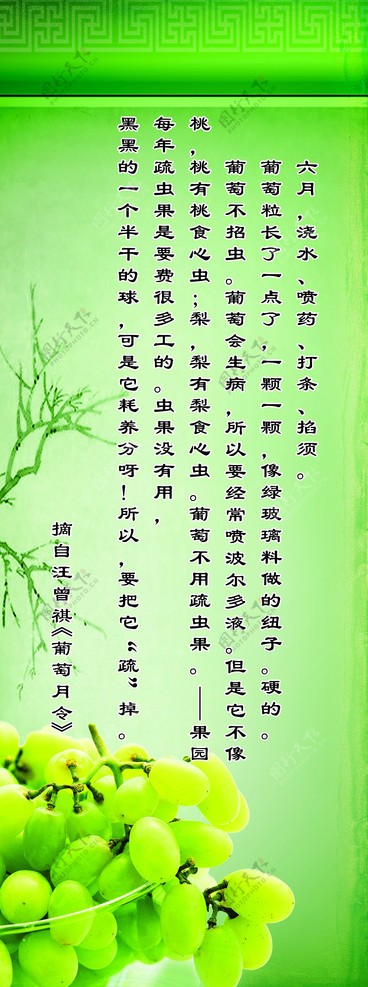 六月，浇水、喷药、打条、掐须。
葡萄粒长了一点了，一颗一颗，像绿玻璃料做的纽子。硬的。
葡萄不招虫。葡萄会生病，所以要经常喷波尔多液。但是它不像
桃，桃有桃食心虫；梨，梨有梨食心虫。葡萄不用疏虫果。——果园
每年疏虫果是要费很多工的。虫果没有用，
黑黑的一个半干的球，可是它耗养分呀！所以，要把它“疏”掉。
摘自汪曾祺《葡萄月令》